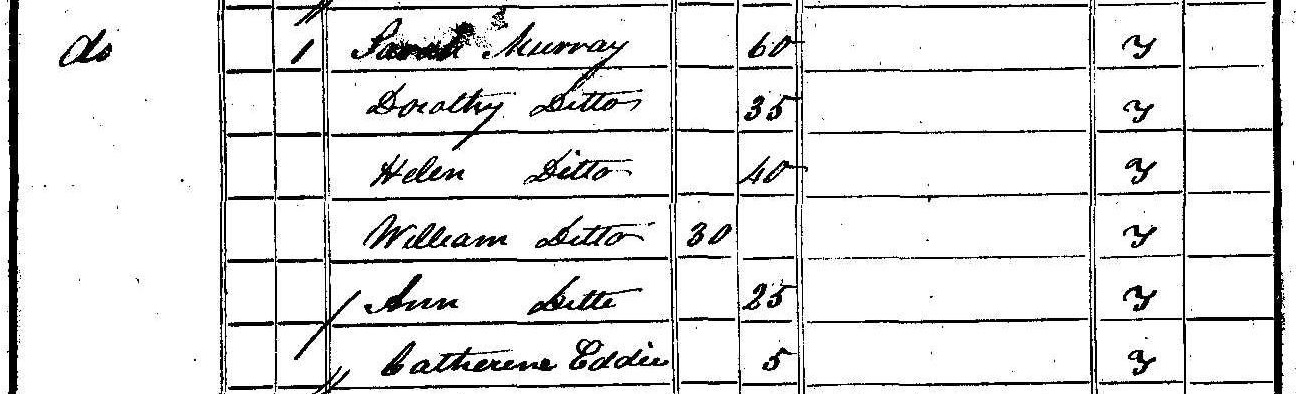 do 1 Sarah Murray 60 Y
Dorothy Ditto 35 Y
Helen Ditto 40 Y
William Ditto 30 Y
Ann Ditto 25 Y
Catherene Eddie 5 Y